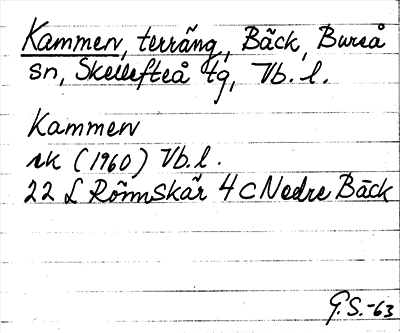 Kammen, terräng, Bäck, Bureå
sn, Skellefteå tg, Vb. l.
Kammen
rk (1960) Vb. l.
22 L Rönnskär 4 c Nedre Bäck
G.S.-63